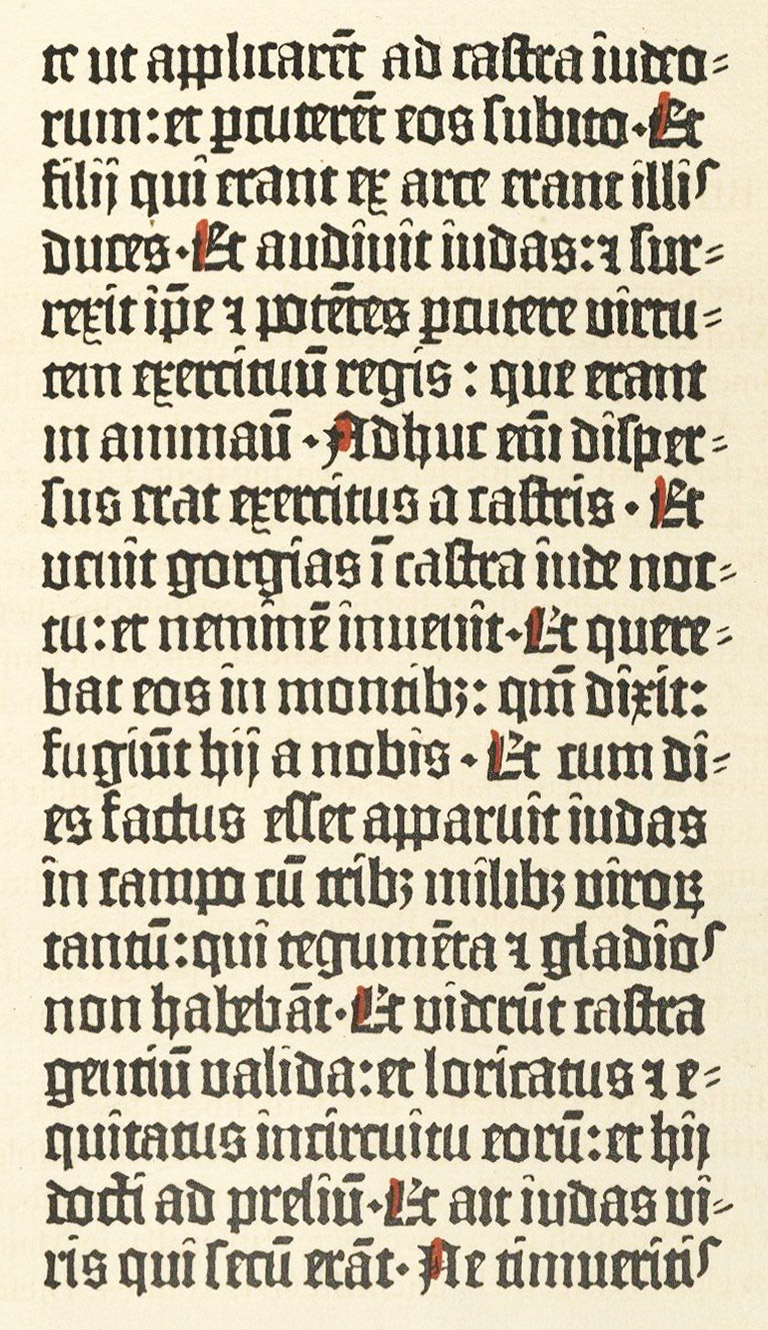 te ut applicarēt ad castra iudeo=
rum: et ꝑcuterēt eos subito. Et
filij qui erant ex arce erant illis
duces. Et audiuit iudas: ⁊ sur=
rexit ip̄e ⁊ potētes ꝑcutere virtu=
tem exercituū regis: que erant
in ammaū. Adhuc em̄ disper=
sus erat exercitus a castris. Et
venit gorgias ī castra iude noc=
tu: et neminē inuenit. Et quere=
bat eos in montibꝫ: qm̄ dixit:
fugiūt hij a nobis. Et cum di=
es factus esset apparuit iudas
in campo cū tribꝫ milibꝫ viroꝝ
tantū: qui tegumēta ⁊ gladios
non habebāt. Et viderūt castra
gentiū valida: et loricatus ⁊ e=
quitatus incircuitu eorū: et hij
docti ad preliū. Et ait iudas vi=
ris qui secū erāt. Ne timueritis